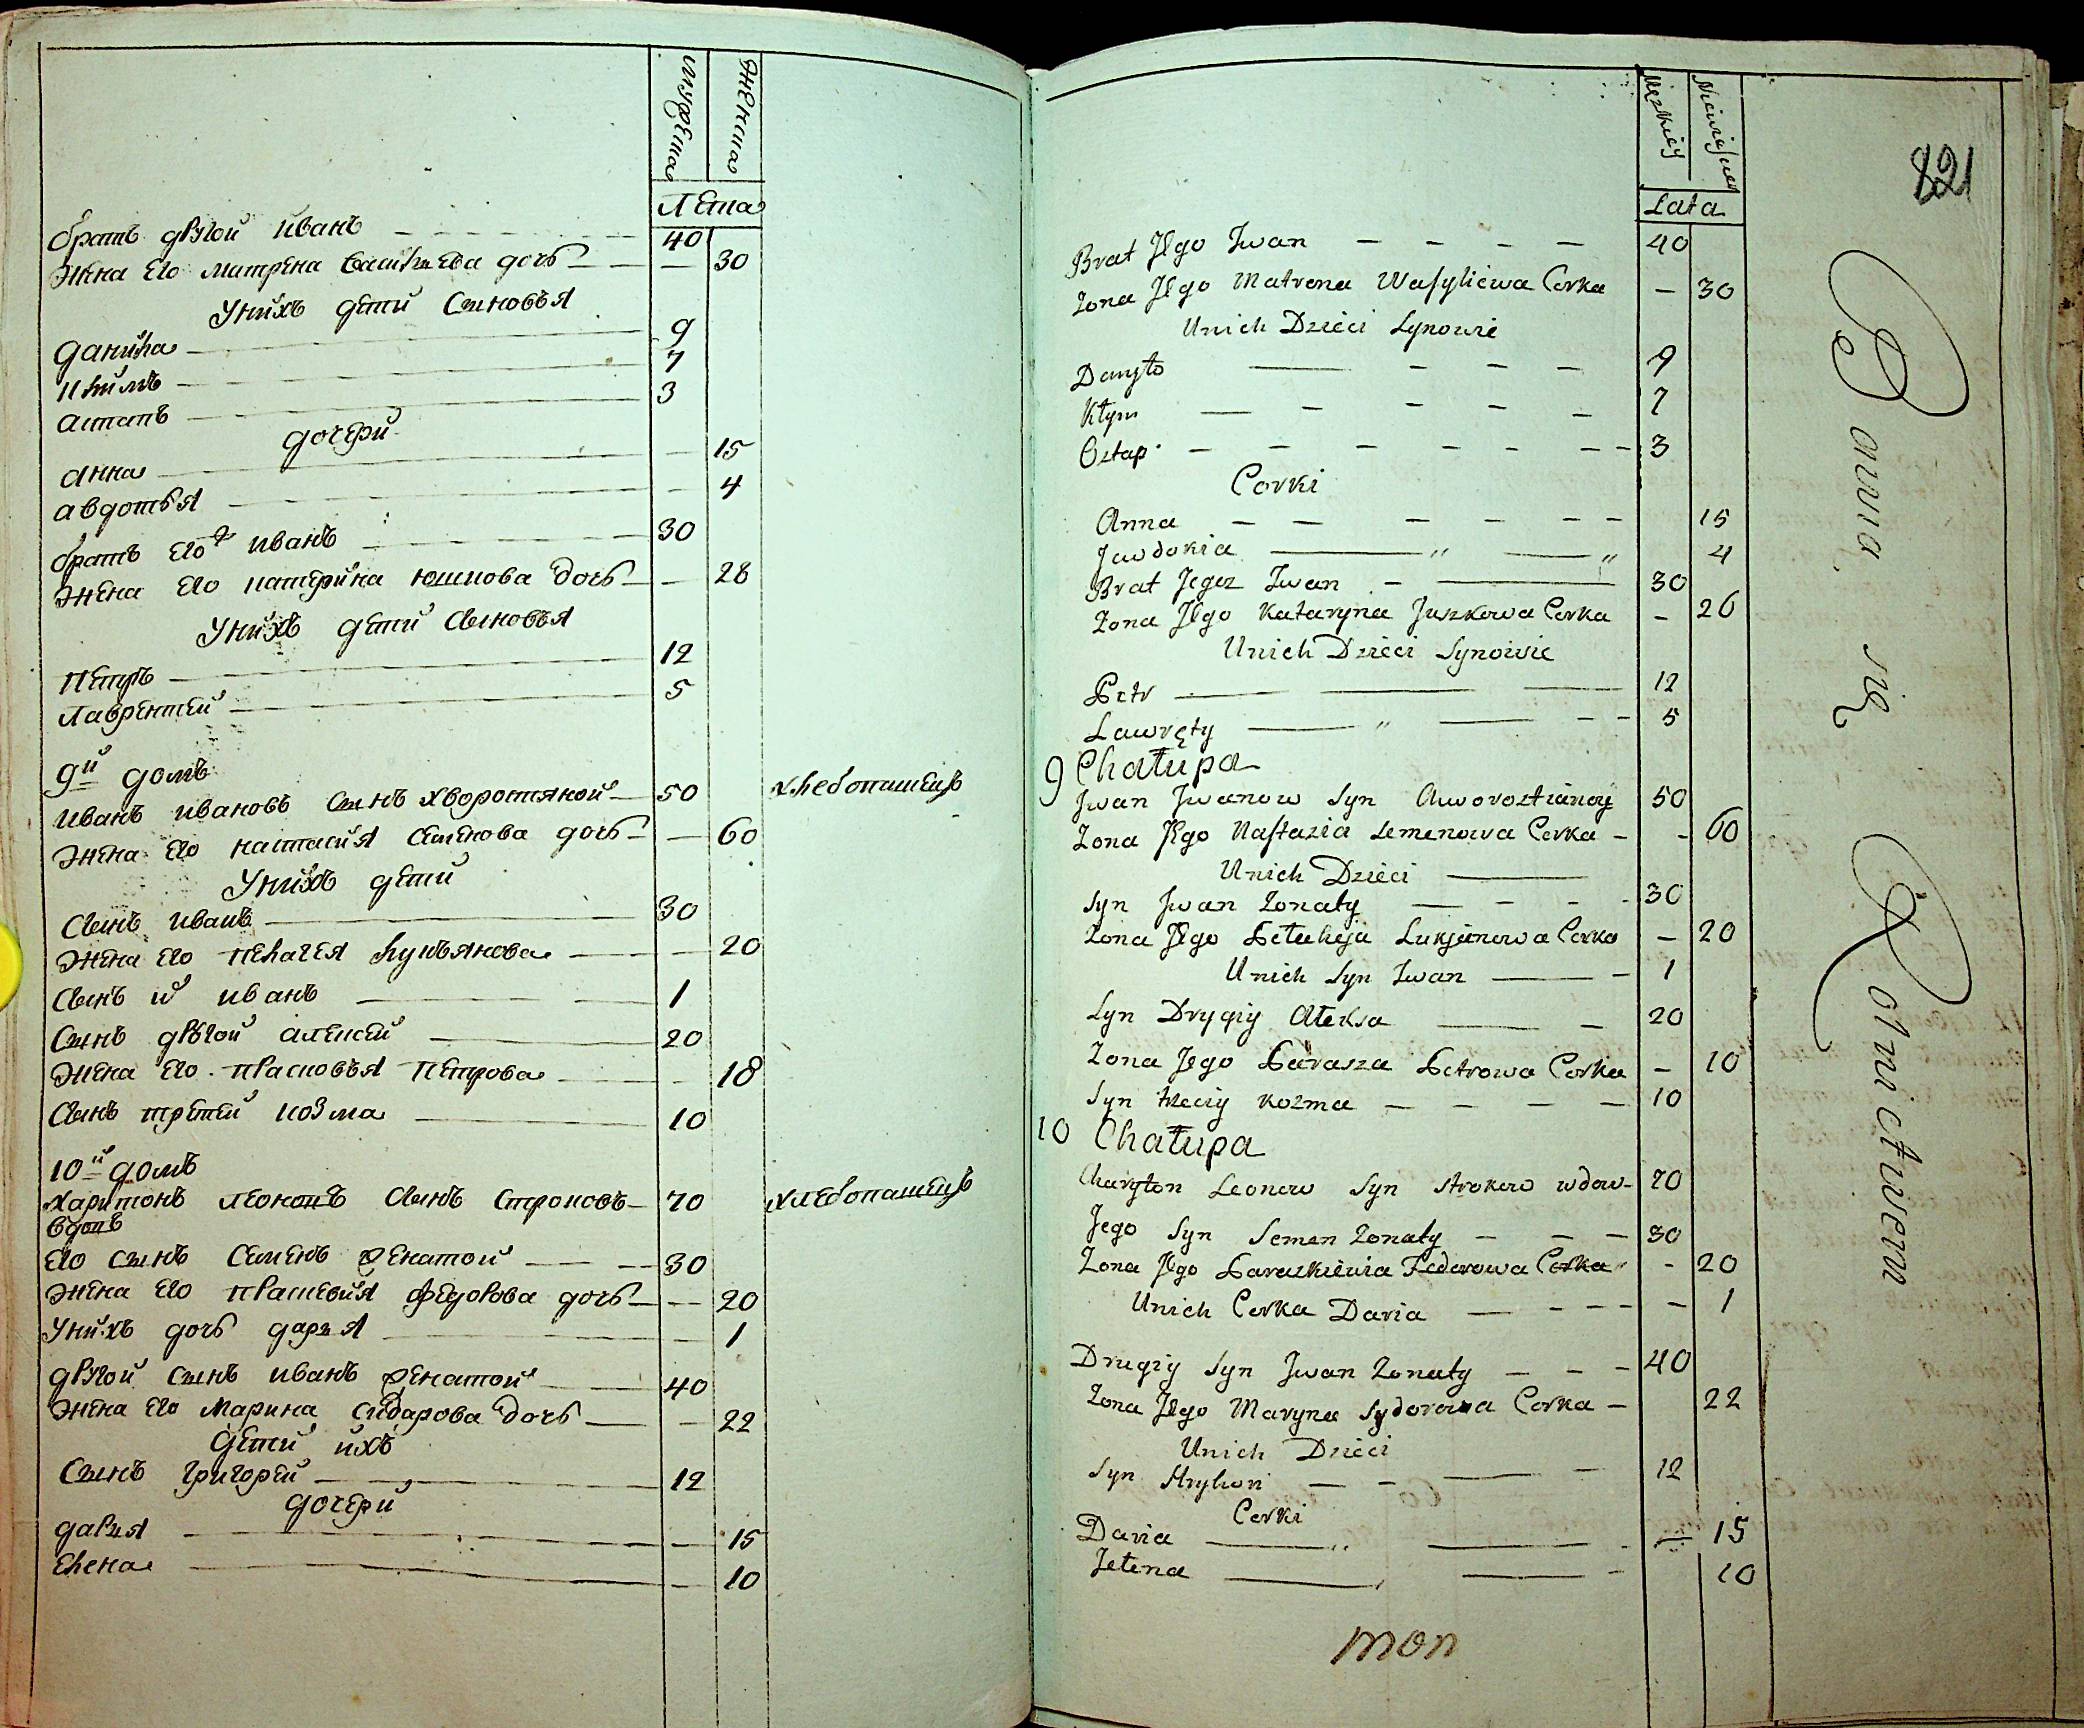 мужеска
женска
Лета
братъ другой иванъ 40
жена его матрена васильева дочь 30
у нихъ дети сыновья
данила 9
климъ 7
астапъ 3
дочери
анна 15
авдотья 4
братъ его иванъ 30
жена его катерина юшкова дочь 28
у нихъ дети сыновья
петръ 12
лаврентей 5
9й домъ
иванъ ивановъ сынъ хворостяной 50 хлебопашецъ
жена его настасия семенова дочь 60
у нихъ дети
сынъ иванъ 30
жена его пелагея лукъянова 20
сынъ и иванъ 1
сынъ другой алексей 20
жена его прасковья петрова 18
сынъ третей козма 10
10й домъ
харитонъ леоновъ сынъ строковъ 70 хлебопашецъ
вдовъ
его сынъ семенъ женатой 30
жена его праскевия федорова дочь 20
у нихъ дочь дарья 1
другой сынъ иванъ женатой 40
жена его марина сидарова дочь 22
дети ихъ
сынъ григорей 12
дочери
дарья 15
елена 10
821
Męzkiey
Lata
Brat Jego Iwan 40
Zona Jego Matrona Wasyliewa Corka 30
Unich Dzieci Synowie
Danyło 9
Kłym 7
Ostap 3
Corki
Anna 15
Jawdokia 4
Brat Jegoz Iwan 30
Zona Jego Kataryna Juszkowa Corka 26
Unich Dzieci Synowie
Petr 12
Lawręty 5
9 Chałupa
Jwan Jwanow Syn Chworostianoy 50
Zona Jego Nastazia Semenowa Corka 60
Unich Dzieci
Syn Jwan Zonaty 30
Zona Jego Pełaheja Lukjanowa Corka 20
Unich Syn Iwan 1
Syn Drygiy Ałeksa 20
Zona Jego Parasza Petrowa Corka 10
Syn trzeciy Kozma 10
10 Chałupa
Charyton Leonow Syn Strokow wdow 70
Jego Syn Semen Zonaty 30
Zona Jego Paraskiewia Fedorowa Corka 20
Unich Corka Daria 1
Drugiy Syn Jwan Zonaty 40
Zona Jego Maryna Sydorowa Corka 22
Unich Dzieci
Syn Hryhori 12
Corki
Daria 15
Jełena 10
mon
Bawią się Rolnictwem